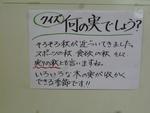 クイズ 何の実でしょう?
そろそろ秋が近づいてきました。
スポーツの秋 食欲の秋 そして
実りの秋とも言いますね。
いろいろな木の実が収かく
できる季節です!!